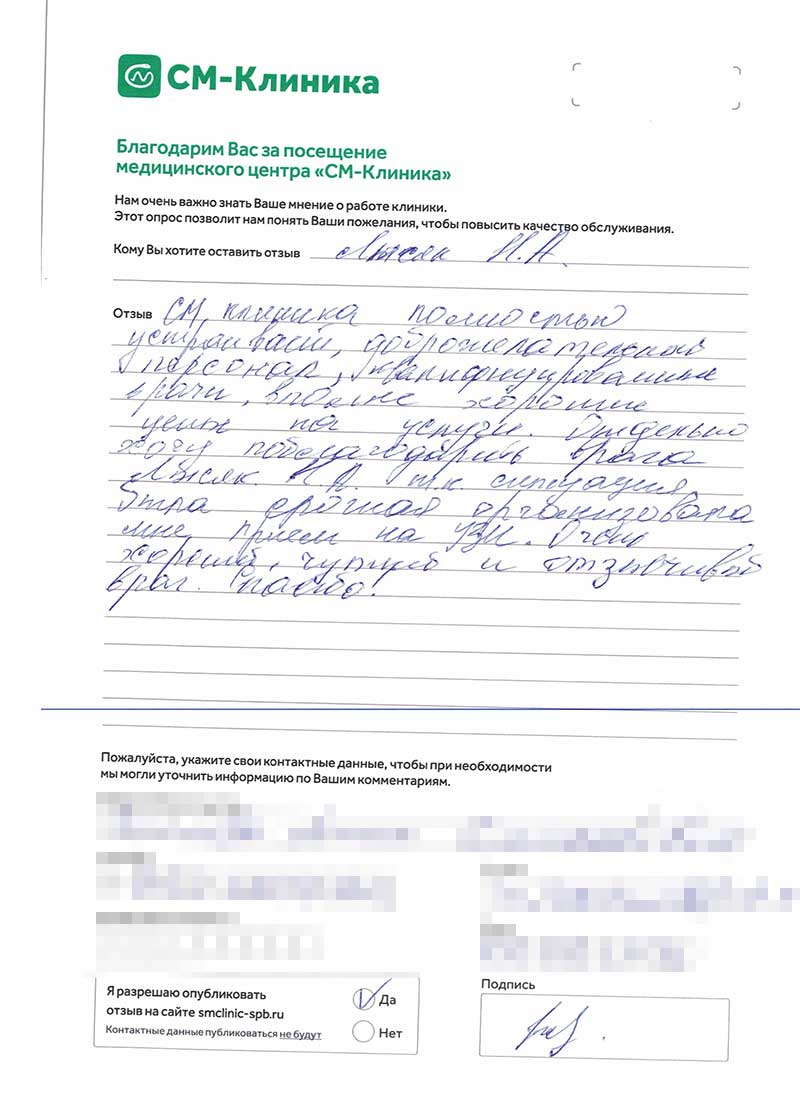 СМ-Клиника
Благодарим Вас за посещение
медицинского центра «СМ-Клиника»
Нам очень важно знать Ваше мнение о работе клиники.
Этот опрос позволит нам понять Ваши пожелания, чтобы повысить качество обслуживания.
Кому Вы хотите оставить отзыв Лысяк Н.А.
Отзыв СМ, клиника полностью
устраивает, доброжелательный
персонал, квалифицированные
врачи, вполне хорошие
цены на услуги. Отдельно
хочу поблагодарить врача
Лысяк Н.А. т.к. ситуация
была срочная организовала
мне прием на УЗИ. Очень
хороший, чуткий и отзывчивый
врач. Спасибо!
Пожалуйста, укажите свои контактные данные, чтобы при необходимости
мы могли уточнить информацию по Вашим комментариям.
Я разрешаю опубликовать
отзыв на сайте smclinic-spb.ru
Контактные данные публиковаться не будут
Да
Нет
Подпись